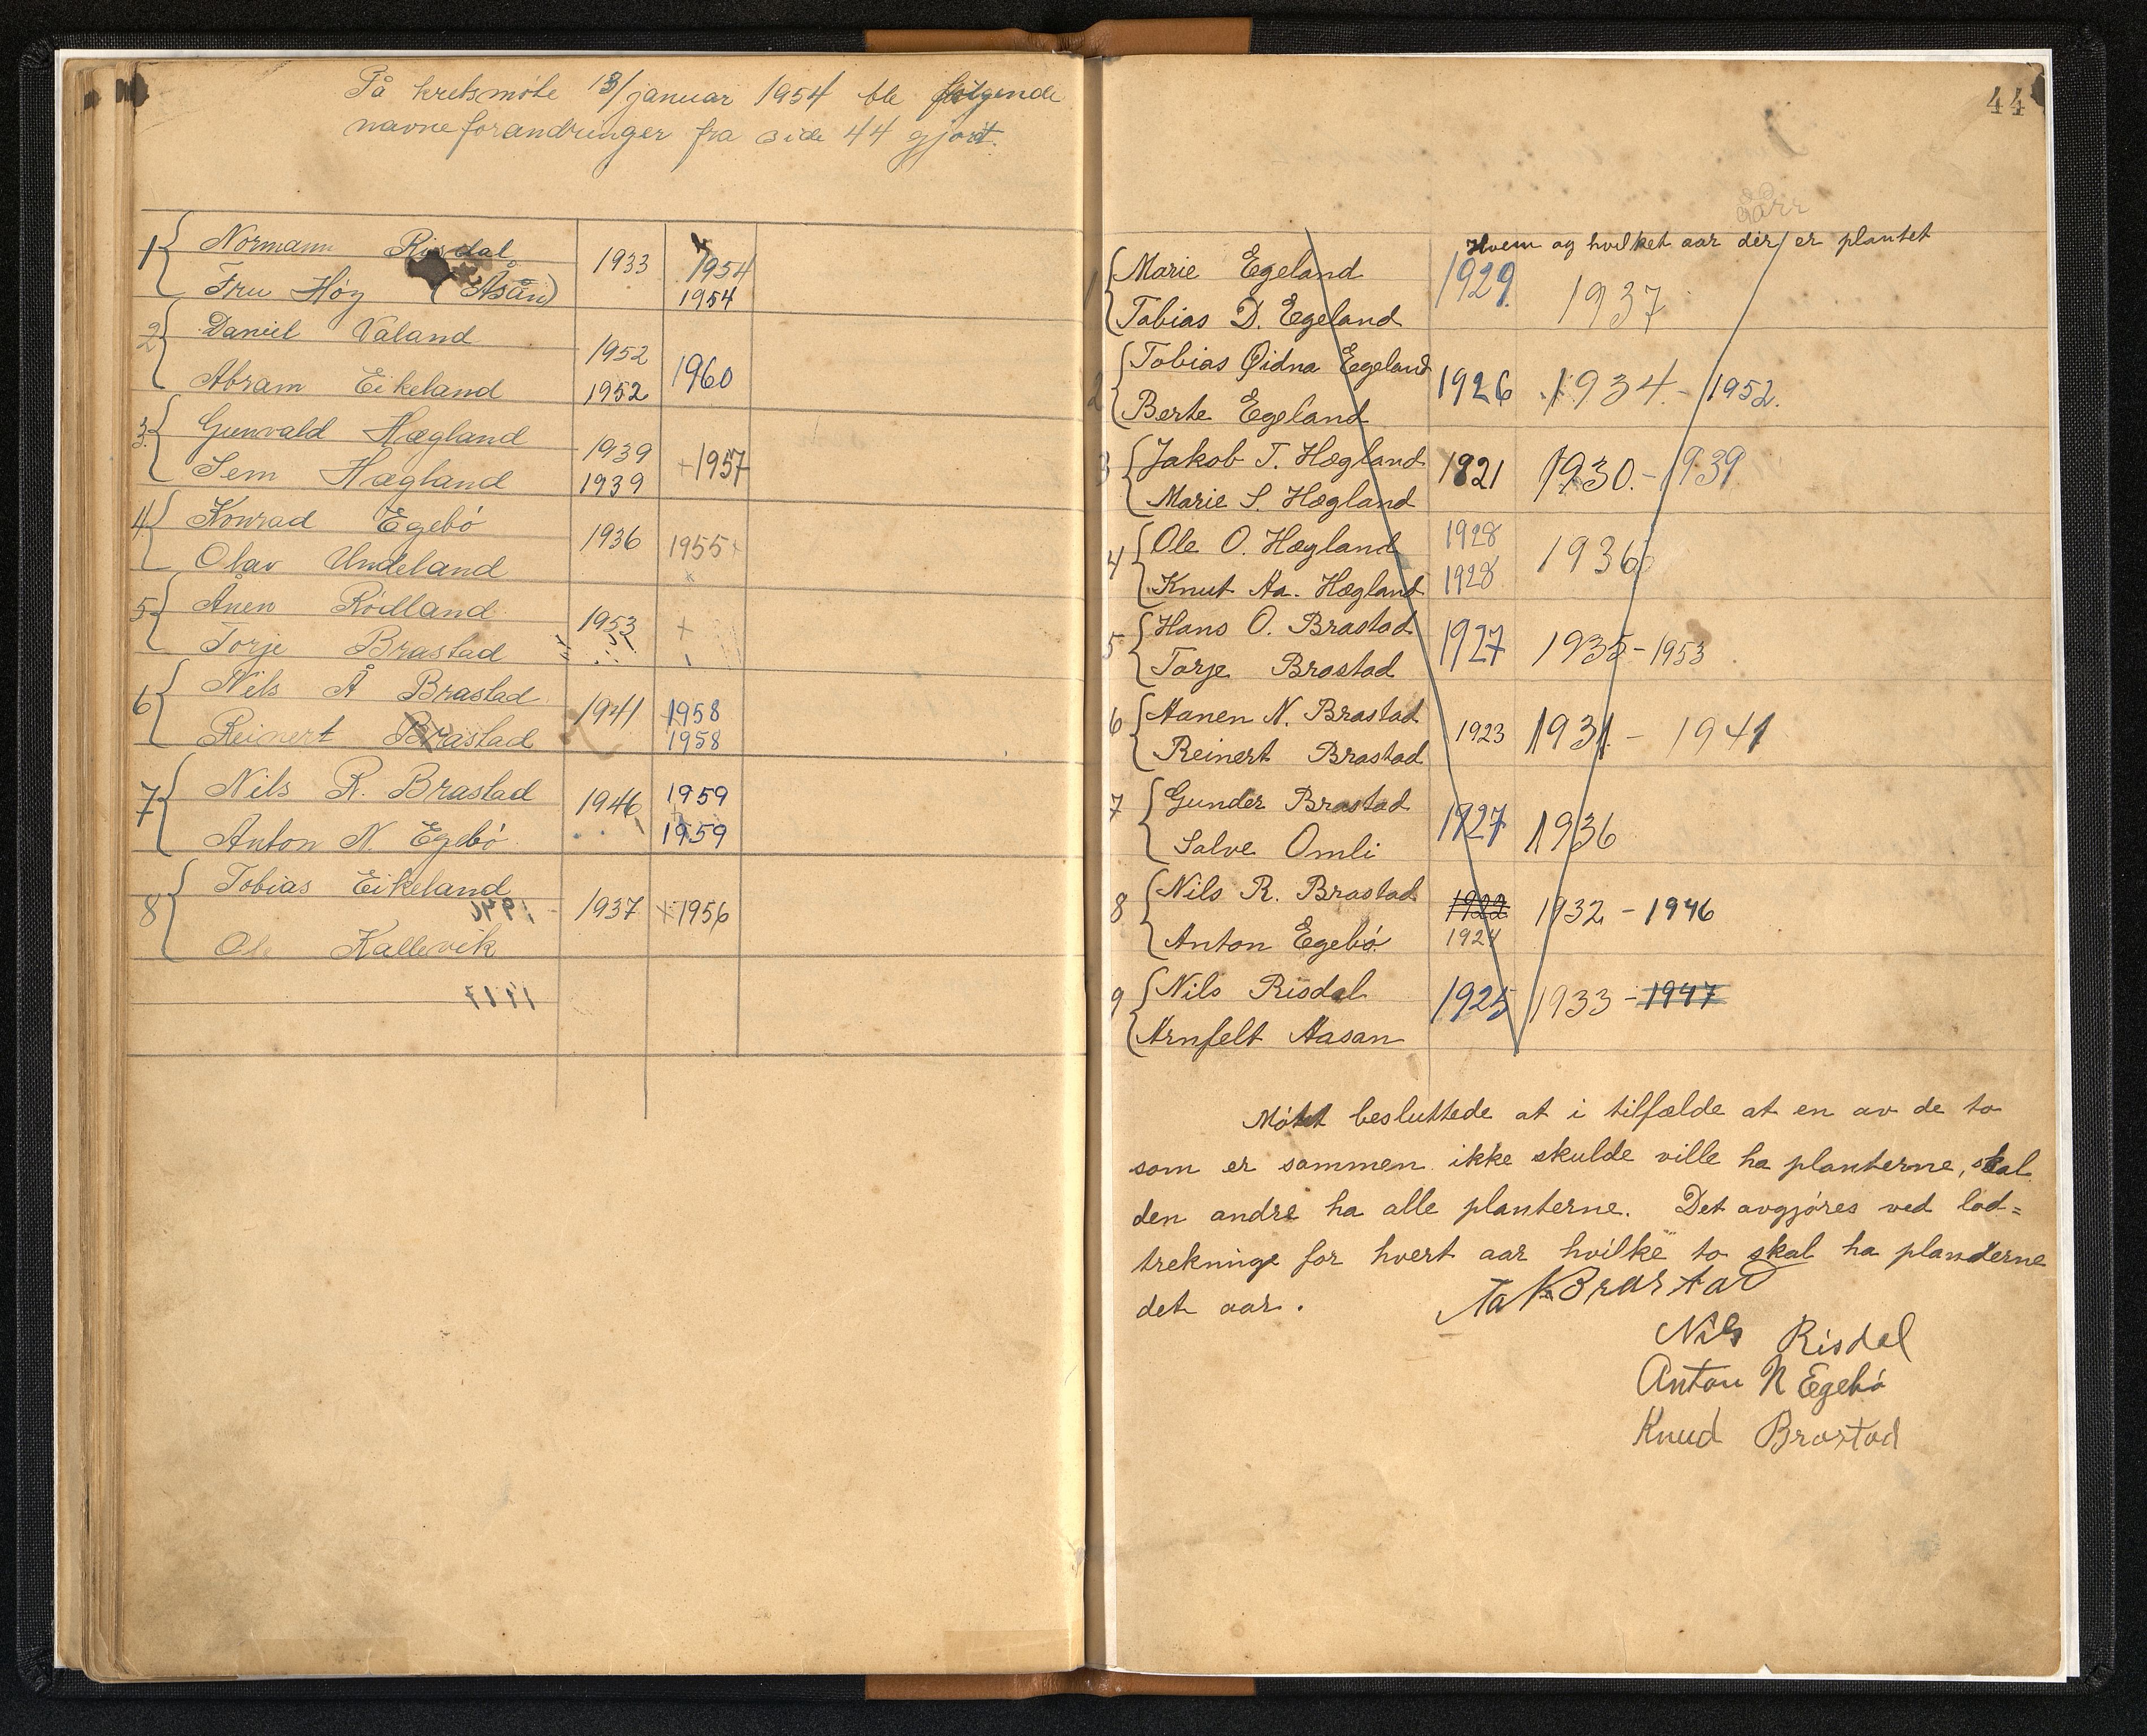 På kretsmöte 13/januar 1954 ble følgende
navneforandringer fra side 44 gjort.
1 Normann Risdal 1933 1954
Fru Høy (Åsån) 1954
2 Daniel Valand 1952
Abram Eikeland 1952 1960
3 Gunvald Hægland 1939
Sem Hægland 1939 +1957
4 Konrad Egebö 1936 1955 +
Olav Undeland +
5 Ånen Rödland 1953 +
Torje Brastad
6 Nils Å Brastad 1941 1958
Reinert Brastad 1958
7 Nils R. Brastad 1946 1959
Anton N. Egebö 1959
8 Tobias Eikeland 1937 +1956
Kallevik
44
Hvem og hvilket aar der er plantet
1 Marie Egeland 1929 1937
Tobias D. Egeland
2 Tobias Egeland 1926 1934 - 1952.
Berte Egeland
3 Jakob T. Hægland 1921 1930. - 1939
Marie S. Hægland
4 Ole O. Hægland 1928 1936
Knut Aa. Hægland 1928
5 Hans O. Brastad 1927 1935 - 1953
Torje Brastad
6 Aanen N. Brastad 1923 1931 - 1941
Reinert Brastad
7 Gunder Brastad 1927 1936
Salve Omli
8 Nils R. Brastad 1922 1932 - 1946
Anton Egebö 1924
9 Nils Risdal 1925 1933 - 1947
Arnfelt Aasan
Möttet besluttede at i tilfælde at en av de to
som er sammen ikke skulde ville ha planterne, skal
den andre ha alle planterne. Det avgjöres ved lod=
trekninge for hvert aar hvilke to skal ha planderne
det aar.
Brastad
Nils Risdal
Anton N Egebö
Knud Brastad